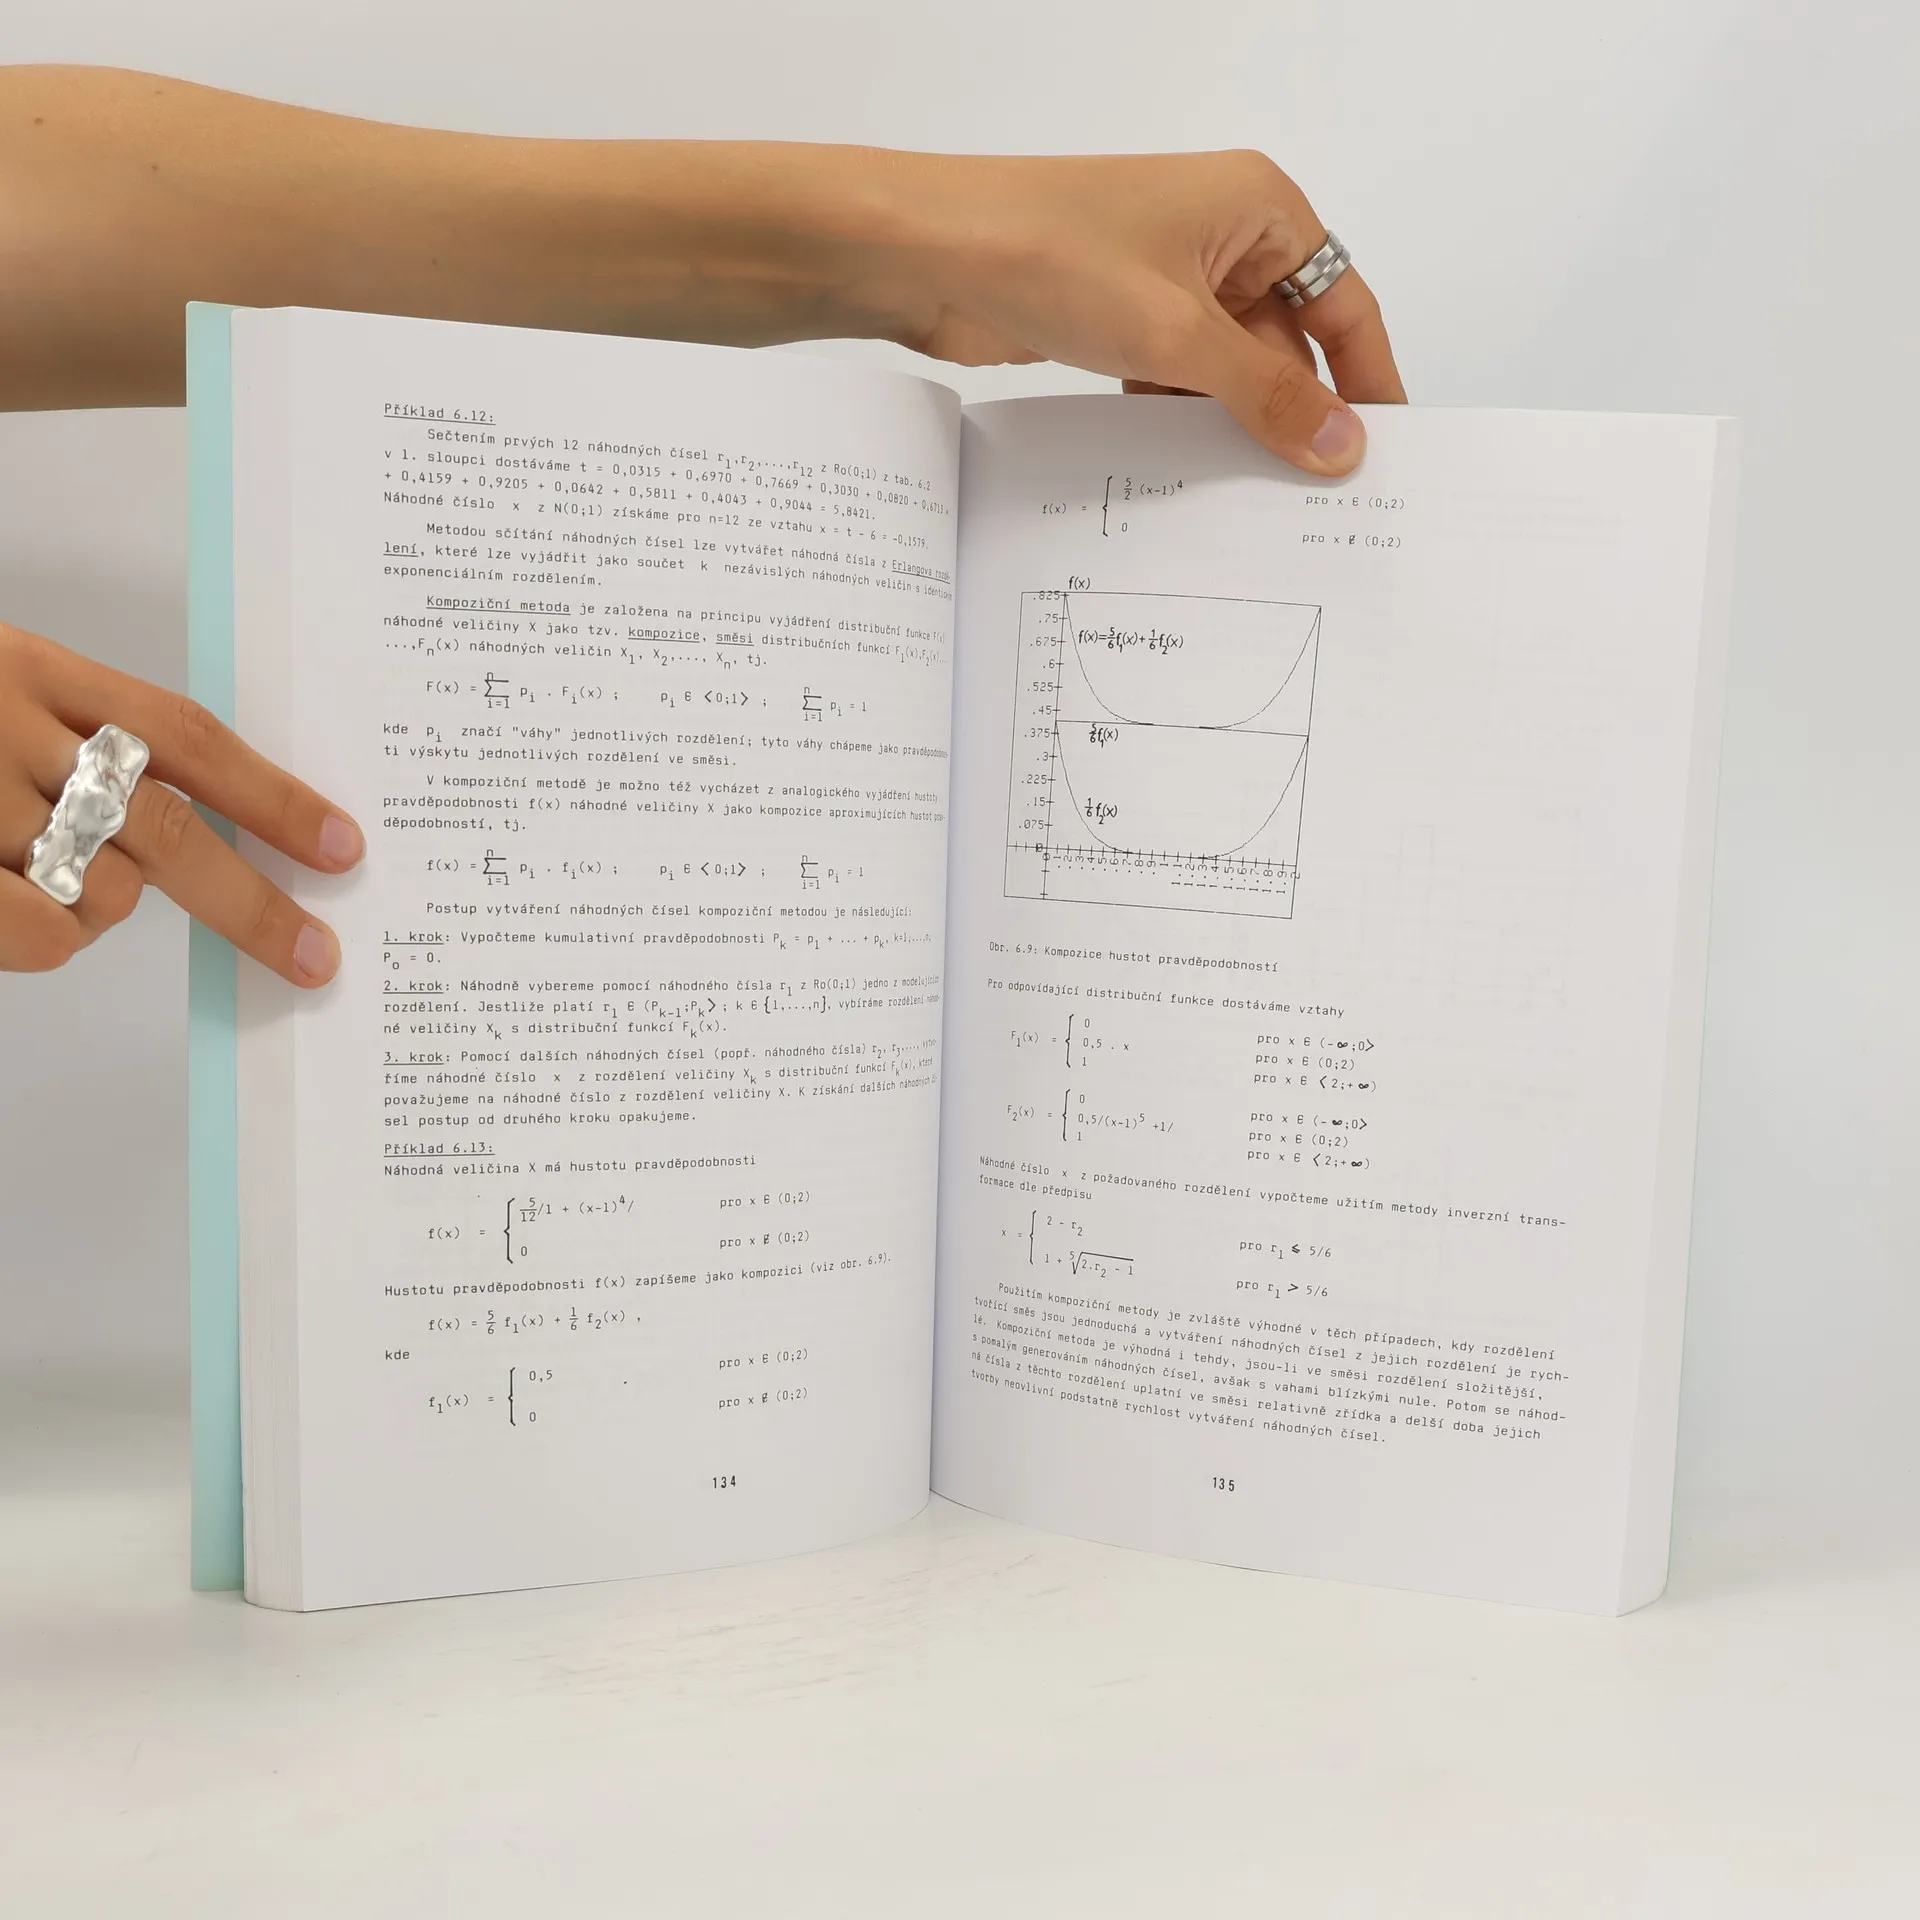 Příklad 6.12:
Sečtením prvých 12 náhodných čísel r₁,r₂,...,r₁₂ z Ro(0;1) z tab. 6.2
v 1. sloupci dostáváme t = 0,0315 + 0,6970 + 0,7669 + 0,3030 + 0,0820 + 0,6713 +
+ 0,4159 + 0,9205 + 0,0642 + 0,5811 + 0,4043 + 0,9044 = 5,8421.
Náhodné číslo x z N(0;1) získáme pro n=12 ze vztahu x = t - 6 = -0,1579.
Metodou sčítání náhodných čísel lze vytvářet náhodná čísla z Erlangova rozdě-
lení, které lze vyjádřit jako součet k nezávislých náhodných veličin s identickým
exponenciálním rozdělením.
Kompoziční metoda je založena na principu vyjádření distribuční funkce F(x)
náhodné veličiny X jako tzv. kompozice, směsi distribučních funkcí F₁(x),F₂(x),...
...,Fₙ(x) náhodných veličin X₁, X₂,..., Xₙ, tj.
F(x) = ∑ᵢ₌₁ⁿ pᵢ . Fᵢ(x) ; pᵢ ∈ <0;1> ; ∑ᵢ₌₁ⁿ pᵢ = 1
kde pᵢ značí "váhy" jednotlivých rozdělení; tyto váhy chápeme jako pravděpodobnos-
ti výskytu jednotlivých rozdělení ve směsi.
V kompoziční metodě je možno též vycházet z analogického vyjádření hustoty
pravděpodobnosti f(x) náhodné veličiny X jako kompozice aproximujících hustot prav-
děpodobností, tj.
f(x) = ∑ᵢ₌₁ⁿ pᵢ . fᵢ(x) ; pᵢ ∈ <0;1> ; ∑ᵢ₌₁ⁿ pᵢ = 1
Postup vytváření náhodných čísel kompoziční metodou je následující:
1. krok: Vypočteme kumulativní pravděpodobnosti Pₖ = p₁ + ... + pₖ, k=1,...,n;
P₀ = 0.
2. krok: Náhodně vybereme pomocí náhodného čísla r₁ z Ro(0;1) jedno z modelujících
rozdělení. Jestliže platí r₁ ∈ (Pₖ₋₁;Pₖ> ; k ∈ {1,...,n}, vybíráme rozdělení náhod-
né veličiny Xₖ s distribuční funkcí Fₖ(x).
3. krok: Pomocí dalších náhodných čísel (popř. náhodného čísla) r₂, r₃,..., vytvo-
říme náhodné číslo x z rozdělení veličiny Xₖ s distribuční funkcí Fₖ(x), které
považujeme na náhodné číslo z rozdělení veličiny X. K získání dalších náhodných čí-
sel postup od druhého kroku opakujeme.
Příklad 6.13:
Náhodná veličina X má hustotu pravděpodobnosti
f(x) = { 5/12 /1 + (x-1)⁴/ pro x ∈ (0;2)
0 pro x ∉ (0;2)
Hustotu pravděpodobnosti f(x) zapíšeme jako kompozici (viz obr. 6.9).
f(x) = 5/6 f₁(x) + 1/6 f₂(x) ,
kde
f₁(x) = { 0,5 pro x ∈ (0;2)
0 pro x ∉ (0;2)
134
f(x) = { 5/2 (x-1)⁴ pro x ∈ (0;2)
0 pro x ∉ (0;2)
f(x)
.825
.75
f(x)=5/6f₁(x)+1/6f₂(x)
.675
.6
.525
.45
.375
5/6f₁(x)
.3
.225
.15
1/6f₂(x)
.075
0
0 .1 .2 .3 .4 .5 .6 .7 .8 .9 1 1.1 1.2 1.3 1.4 1.5 1.6 1.7 1.8 1.9 2
Obr. 6.9: Kompozice hustot pravděpodobností
Pro odpovídající distribuční funkce dostáváme vztahy
0 pro x ∈ (-∞;0>
F₁(x) = { 0,5 . x pro x ∈ (0;2)
1 pro x ∈ <2;+∞)
0 pro x ∈ (-∞;0>
F₂(x) = { 0,5/(x-1)⁵ +1/ pro x ∈ (0;2)
1 pro x ∈ <2;+∞)
Náhodné číslo x z požadovaného rozdělení vypočteme užitím metody inverzní trans-
formace dle předpisu
x = { 2 - r₂ pro r₁ ≤ 5/6
1 + ⁵√2.r₂ - 1 pro r₁ > 5/6
Použitím kompoziční metody je zvláště výhodné v těch případech, kdy rozdělení
tvořící směs jsou jednoduchá a vytváření náhodných čísel z jejich rozdělení je rych-
lé. Kompoziční metoda je výhodná i tehdy, jsou-li ve směsi rozdělení složitější,
s pomalým generováním náhodných čísel, avšak s vahami blízkými nule. Potom se náhod-
ná čísla z těchto rozdělení uplatní ve směsi relativně zřídka a delší doba jejich
tvorby neovlivní podstatně rychlost vytváření náhodných čísel.
135